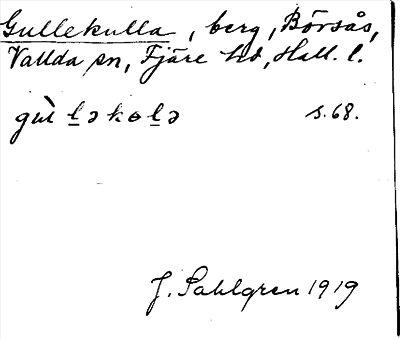 Gullekulla, berg, Börsås,
Vallda sn, Fjäre hd, Hall. l.
s. 68.
J. Sahlgren 1919